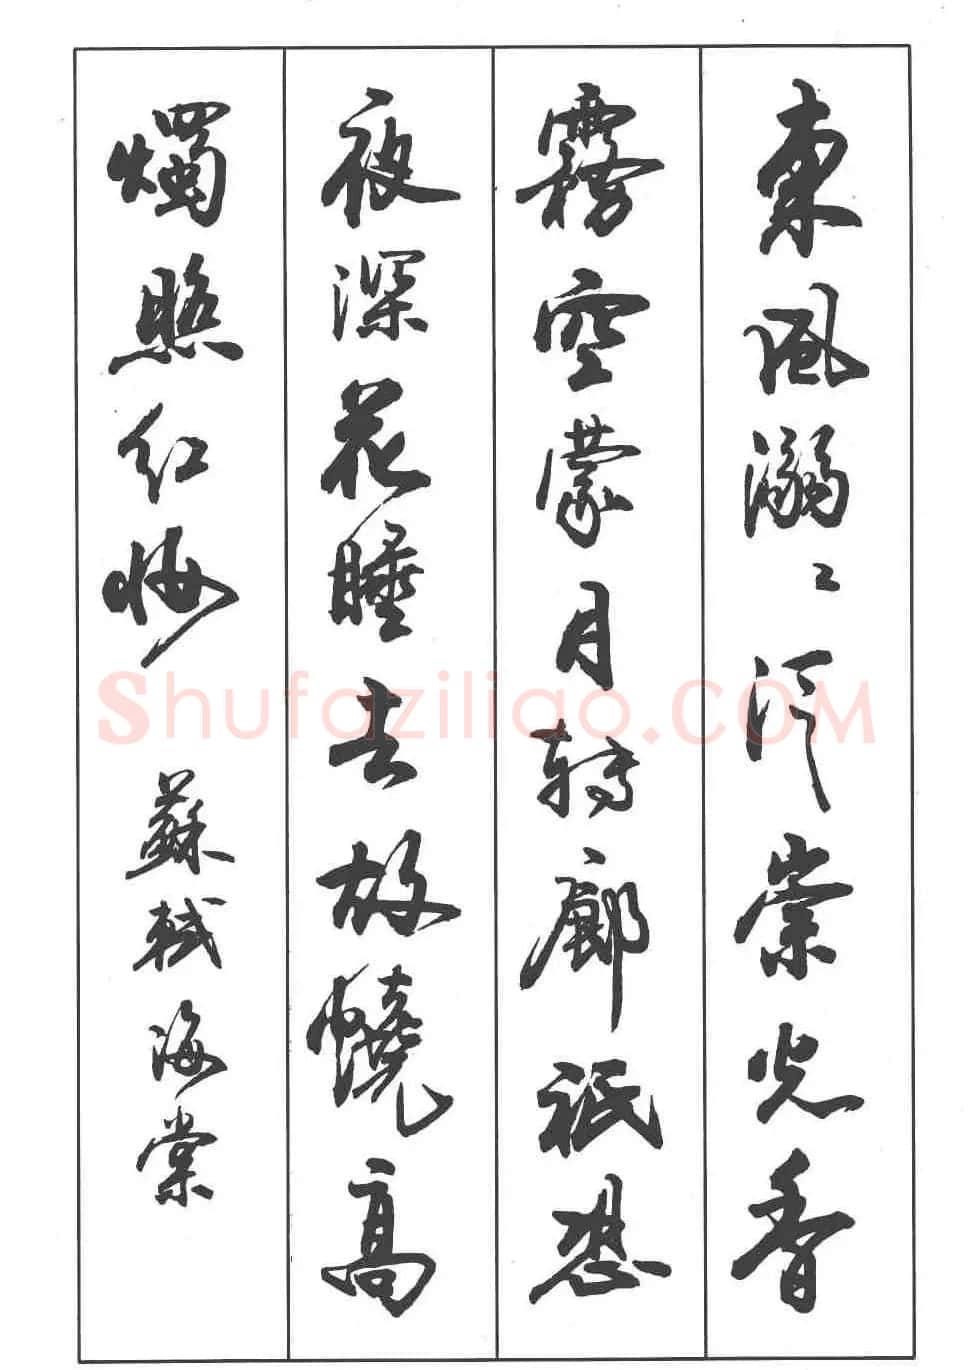 東風嫋〻泛崇光香
霧空蒙月轉廊祇恐
夜深花睡去故燒高
燭照紅妝 蘇軾海棠
Shufaziliao.COM